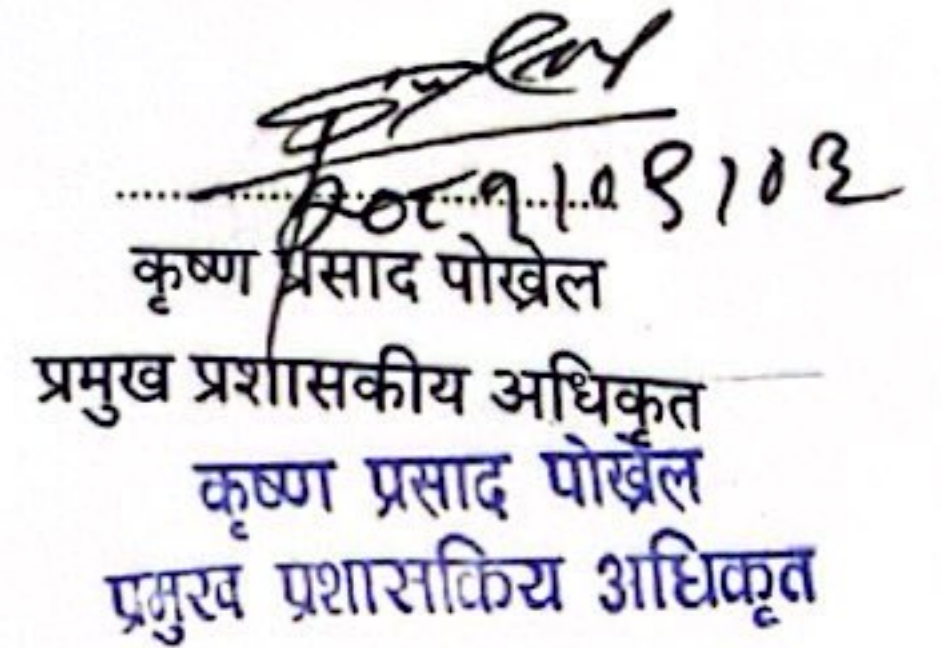 २०८१।०९।०३
कृष्ण प्रसाद पोख्रेल
प्रमुख प्रशासकीय अधिकृत
कृष्ण प्रसाद पोख्रेल
प्रमुख प्रशासकिय अधिकृत